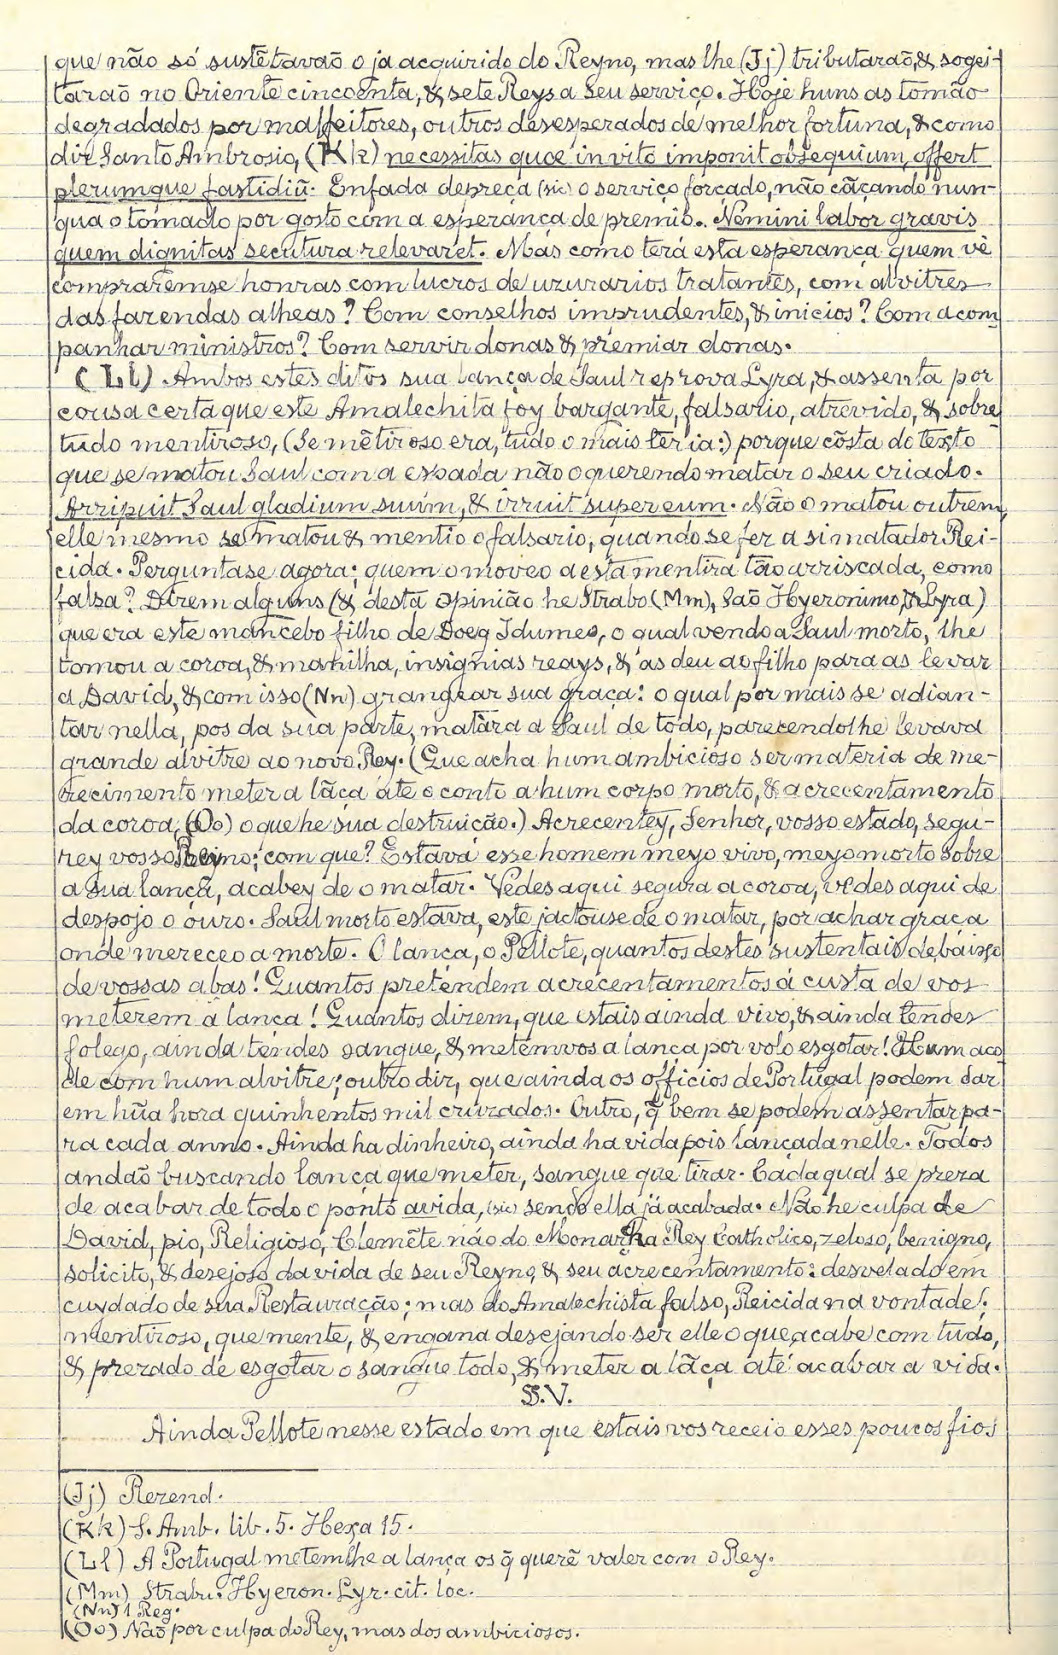 que não só sustẽtavaõ o ja acquirido do Reyno, mas lhe (Jj) tributaraõ, & sogei-
taraõ no Oriente cincoenta, & sete Reys a seu serviço. Hoje huns as tomão
degradados por malfeitores, outros desesperados de melhor fortuna, & como
diz Santo Ambrosio, (Kk) necessitas quœ invito imponit obsequium, offert
plerumque fastidiũ. Enfada depreça (sic) o serviço forçado, não cãçando nun-
qua o tomado por gosto com a esperança de premio. Nemini labor gravis
quem dignitas secutura relevaret. Mas como terá esta esperança quem vê
comprarẽmse honras com lucros de uzurarios tratantes, com alvitres
das fazendas alheas? Com conselhos imprudentes, & inicios? Com acom
panhar ministros? Com servir donas & premiar donas.
(Ll) Ambos estes ditos sua lança de Saul reprova Lyra, & assenta por
cousa certa que este Amalechita foy bargante, falsario, atrevido, & sobre
tudo mentiroso, (Se mẽtiroso era, tudo o mais teria:) porque cõsta do texto
que se matou Saul com a espada não o querendo matar o seu criado.
Arripuit Saul gladium suum, & irruit super eum. Não o matou outrem,
elle mesmo se matou & mentio o falsario, quando se fez a si matador Rei-
cida. Perguntase agora; quem o moveo a esta mentira tão arriscada, como
falsa? Dizem alguns (& desta opinião he Strabo (Mm), Saõ Hyeronimo, & Lyra)
que era este mancebo filho de Doeg Idumeo, o qual vendo a Saul morto, lhe
tomou a coroa, & manilha, insignias reays, & as deu ao filho para as levar
a David, & com isso (Nn) grangear sua graça: o qual por mais se adian-
tar nella, pos da sua parte, matàra a Saul de todo, parecendolhe levava
grande alvitre ao novo Rey. (Que acha hum ambicioso ser materia de me-
recimento meter a lãça até o conto a hum corpo morto, & acrecentamento
da coroa, (Oo) o que he sua destruição.) Acrecentey, Senhor, vosso estado, segu-
rey vosso Reyno; com que? Estava esse homem meyo vivo, meyo morto sobre
a sua lança, acabey de o matar. Vedes aqui segura a coroa, vedes aqui de
despojo o ouro. Saul morto estava, este jactouse de o matar, por achar graça
onde mereceo a morte. O lança, o Pellote, quantos destes sustentais debaixo
de vossas abas! Quantos pretendem acrecentamentos á custa de vos
meterem a lança! Quantos dizem, que estais ainda vivo, & ainda tendes
folego, ainda tendes sangue, & metemvos a lança por volo esgotar! Hum aco
de com hum alvitre; outro diz, que ainda os officios de Portugal podem dar
em hũa hora quinhentos mil cruzados. Outro, q̃ bem se podem assentar pa-
ra cada anno. Ainda ha dinheiro, ainda ha vida pois lançada nelle. Todos
andaõ buscando lança que meter, sangue que tirar. Cada qual se preza
de acabar de todo o ponto avida, (sic) sendo ella já acabada. Não he culpa de
David, pio, Religioso, Clemẽte não do Monarcha Rey Catholico, zeloso, benigno,
solicito, & desejoso da vida de seu Reyno, & seu acrecentamento: desvelado em
cuydado de sua Restauração; mas do Amalechista falso, Reicida na vontade,
mentiroso, que mente, & engana desejando ser elle o que acabe com tudo,
& prezado de esgotar o sangue todo, & meter a lãça até acabar a vida.
§.V.
Ainda Pellote nesse estado em que estais vos receio esses poucos fios
(Jj) Rezend.
(Kk) S. Amb. lib. 5. Hexa 15.
(Ll) A Portugal metemlhe a lança os q̃ querẽ valer com o Rey.
(Mm) Strabu. Hyeron. Lyr. cit. loc.
(Nn) 1 Reg.
(Oo) Naõ por culpa do Rey, mas dos ambiciosos.